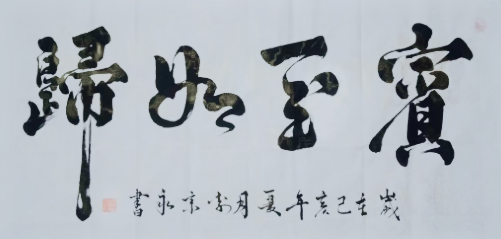 賓至如歸
歲在己亥年夏月於京永書